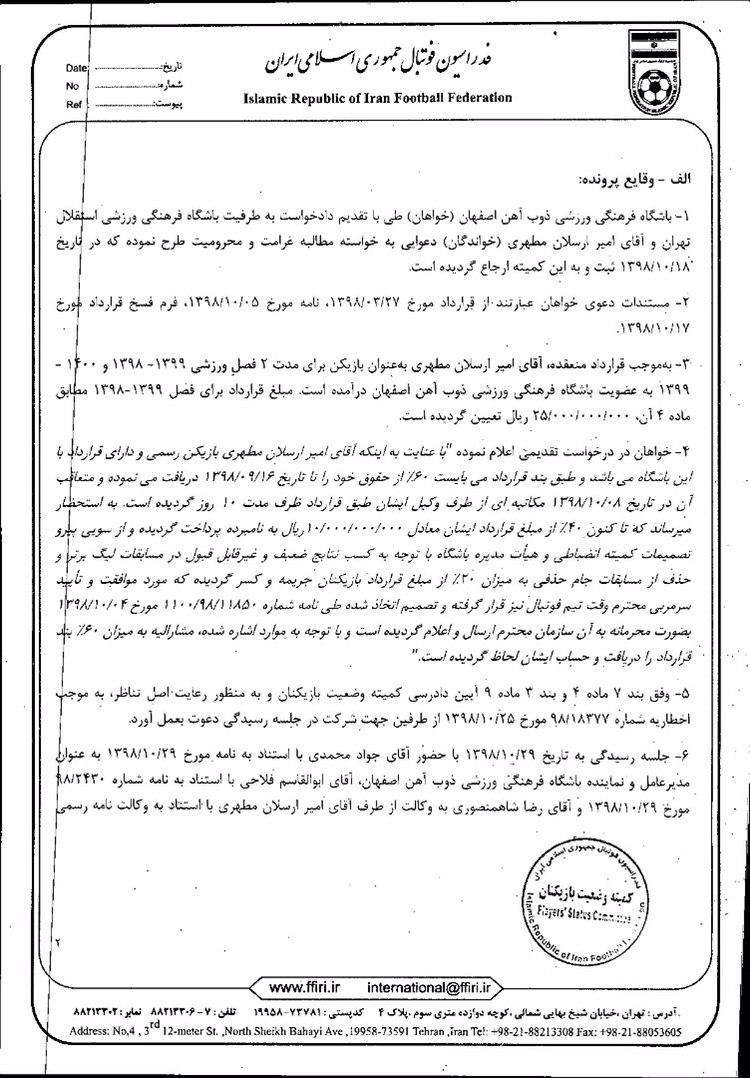 فدراسیون فوتبال جمهوری اسلامی ایران
Islamic Republic of Iran Football Federation
Date تاریخ:
No شماره:
Ref پیوست:
الف - وقایع پرونده:
۱- باشگاه فرهنگی ورزشی ذوب آهن اصفهان (خواهان) طی با تقدیم دادخواست به طرفیت باشگاه فرهنگی ورزشی استقلال
تهران و آقای امیر ارسلان مطهری (خواندگان) دعوایی به خواسته مطالبه غرامت و محرومیت طرح نموده که در تاریخ
۱۳۹۸/۱۰/۱۸ ثبت و به این کمیته ارجاع گردیده است.
۲- مستندات دعوی خواهان عبارتند از قرارداد مورخ ۱۳۹۸/۰۳/۲۷، نامه مورخ ۱۳۹۸/۱۰/۰۵، فرم فسخ قرارداد مورخ
۱۳۹۸/۱۰/۱۷.
۳- به‌موجب قرارداد منعقده، آقای امیر ارسلان مطهری به‌عنوان بازیکن برای مدت ۲ فصل ورزشی ۱۳۹۹- ۱۳۹۸ و ۱۴۰۰ -
۱۳۹۹ به عضویت باشگاه فرهنگی ورزشی ذوب آهن اصفهان درآمده است. مبلغ قرارداد برای فصل ۱۳۹۹-۱۳۹۸ مطابق
ماده ۴ آن، ۲۵/۰۰۰/۰۰۰/۰۰۰ ریال تعیین گردیده است.
۴- خواهان در درخواست تقدیمی اعلام نموده "با عنایت به اینکه آقای امیر ارسلان مطهری بازیکن رسمی و دارای قرارداد با
این باشگاه می باشد و طبق بند قرارداد می بایست ۶۰٪ از حقوق خود را تا تاریخ ۱۳۹۸/۰۹/۱۶ دریافت می نموده و متعاقب
آن در تاریخ ۱۳۹۸/۱۰/۰۸ مکاتبه ای از طرف وکیل ایشان طبق قرارداد ظرف مدت ۱۰ روز گردیده است. به استحضار
میرساند که تا کنون ۴۰٪ از مبلغ قرارداد ایشان معادل ۱۰/۰۰۰/۰۰۰/۰۰۰ ریال به نامبرده پرداخت گردیده و از سویی پیرو
تصمیمات کمیته انضباطی و هیأت مدیره باشگاه با توجه به کسب نتایج ضعیف و غیرقابل قبول در مسابقات لیگ برتر و
حذف از مسابقات جام حذفی به میزان ۲۰٪ از مبلغ قرارداد بازیکنان جریمه و کسر گردیده که مورد موافقت و تأیید
سرمربی محترم وقت تیم فوتبال نیز قرار گرفته و تصمیم اتخاذ شده طی نامه شماره ۱۱۰۰/۹۸/۱۱۸۵۰ مورخ ۱۳۹۸/۱۰/۰۴
بصورت محرمانه به آن سازمان محترم ارسال و اعلام گردیده است و با توجه به موارد اشاره شده، مشارالیه به میزان ۶۰٪ بند
قرارداد را دریافت و حساب ایشان لحاظ گردیده است."
۵- وفق بند ۷ ماده ۴ و بند ۳ ماده ۹ آیین دادرسی کمیته وضعیت بازیکنان و به منظور رعایت اصل تناظر، به موجب
اخطاریه شماره ۹۸/۱۸۳۷۷ مورخ ۱۳۹۸/۱۰/۲۵ از طرفین جهت شرکت در جلسه رسیدگی دعوت بعمل آورد.
۶- جلسه رسیدگی به تاریخ ۱۳۹۸/۱۰/۲۹ با حضور آقای جواد محمدی با استناد به نامه مورخ ۱۳۹۸/۱۰/۲۹ به عنوان
مدیرعامل و نماینده باشگاه فرهنگی ورزشی ذوب آهن اصفهان، آقای ابوالقاسم فلاحی با استناد به نامه شماره ۹۸/۲۴۳۰
مورخ ۱۳۹۸/۱۰/۲۹ و آقای رضا شاهمنصوری به وکالت از طرف آقای امیر ارسلان مطهری با استناد به وکالت نامه رسمی
فدراسیون فوتبال جمهوری اسلامی ایران
کمیته وضعیت بازیکنان
Players' Status
Islamic Republic of Iran Football
۲
www.ffiri.ir international@ffiri.ir
آدرس : تهران ،خیابان شیخ بهایی شمالی ،کوچه دوازده متری سوم ،پلاک ۴ کدپستی : ۷۳۷۸۱-۱۹۹۵۸ تلفن : ۷-۸۸۲۱۳۳۰۶ نمابر : ۸۸۲۱۳۳۰۲
Address: No,4 , 3rd 12-meter St. ,North Sheikh Bahayi Ave ,19958-73591 Tehran ,Iran Tel: +98-21-88213308 Fax: +98-21-88053605